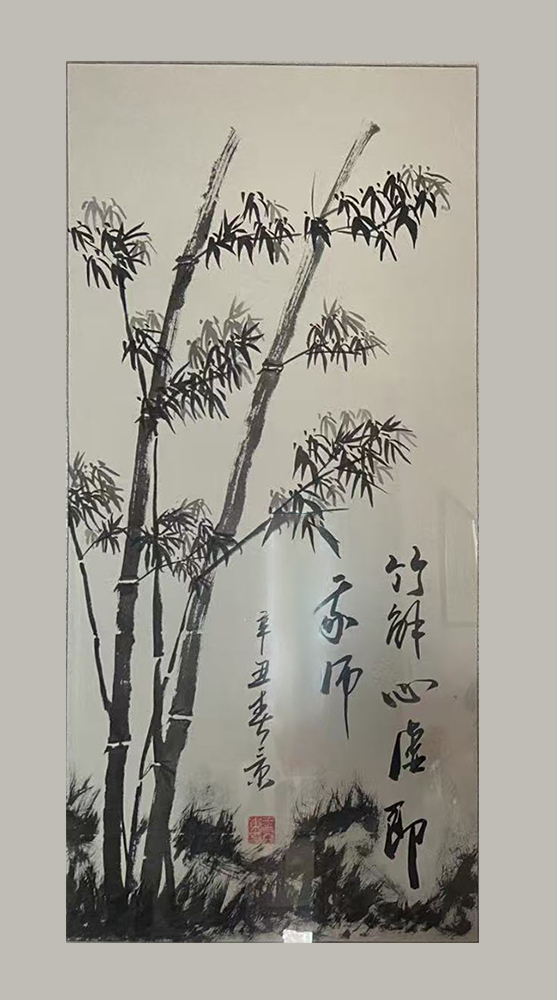 竹解心虚即
我师
辛丑春景